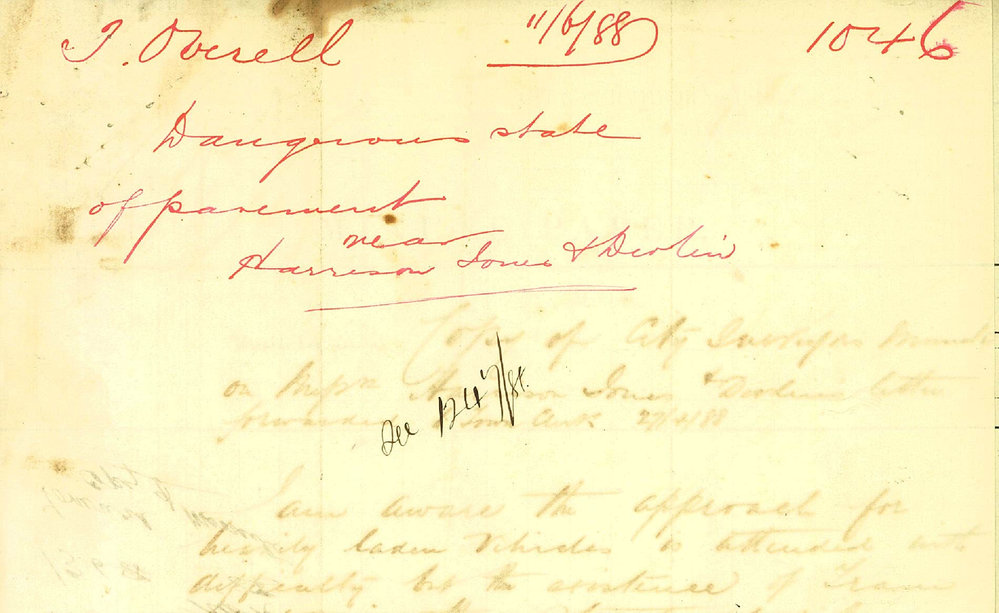 T. Overell 11/6/88 1046
Dangerous state
of pavement
near
Harrison Jones & Devlin
See 1247/88.
Copy of City Surveyors
on Messrs Harrison Jones & Devlins letter
forwarded Town Clerk 27/4/88
I am aware the approach for
heavily laden vehicles is attended with
difficulty but the existence of Tram